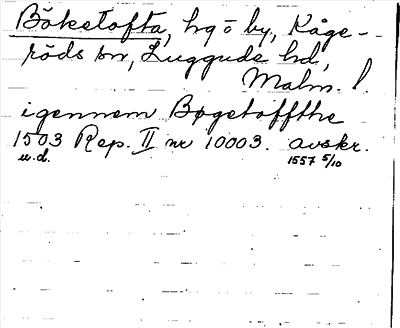 Bökestofta, hg o by, Kåge-
röds sn, Luggude hd,
Malm. l.
igennem Bøgetoffthe
1503 Rep. II nr 10003. avskr.
u.d. 1557 5/10